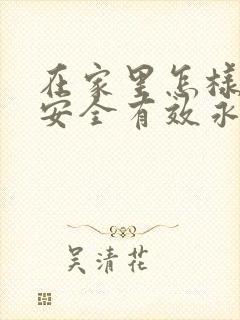 在家里怎样
安全有效永
吴清花